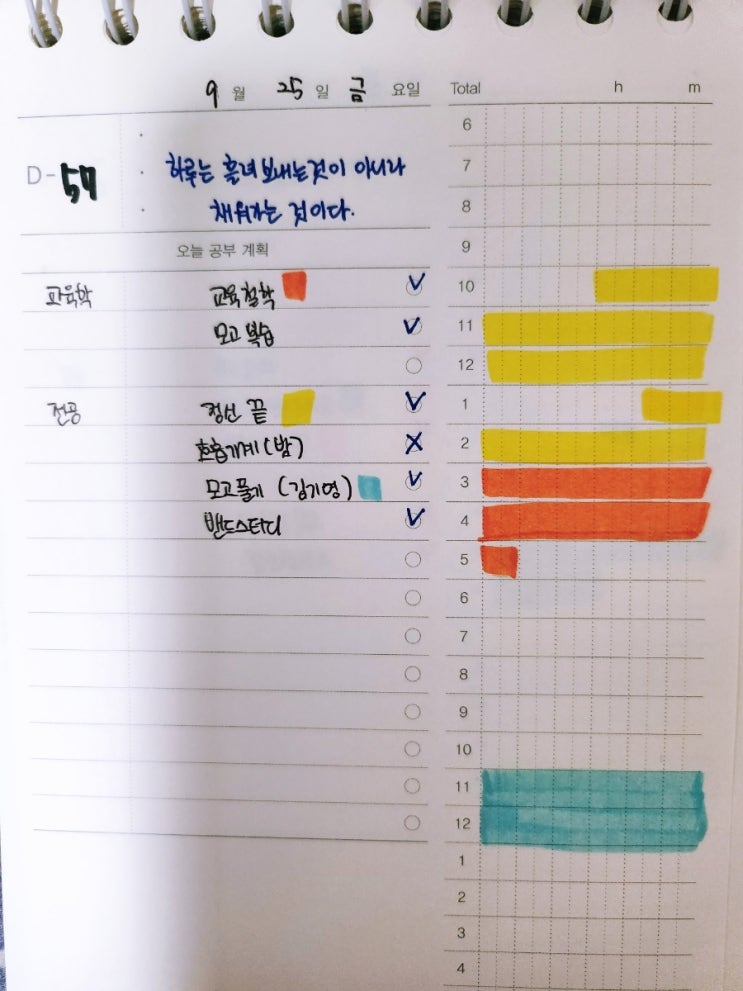 9 월 25 일 금 요일
D-57
하루는 흘려 보내는 것이 아니라
채워가는 것이다.
오늘 공부 계획
교육학 교육철학
모고 복습
전공 정신 끝
호흡기계 (밤)
모고풀기 (김기영)
밴드스터디
Total h m
6
7
8
9
10
11
12
1
2
3
4
5
6
7
8
9
10
11
12
1
2
3
4